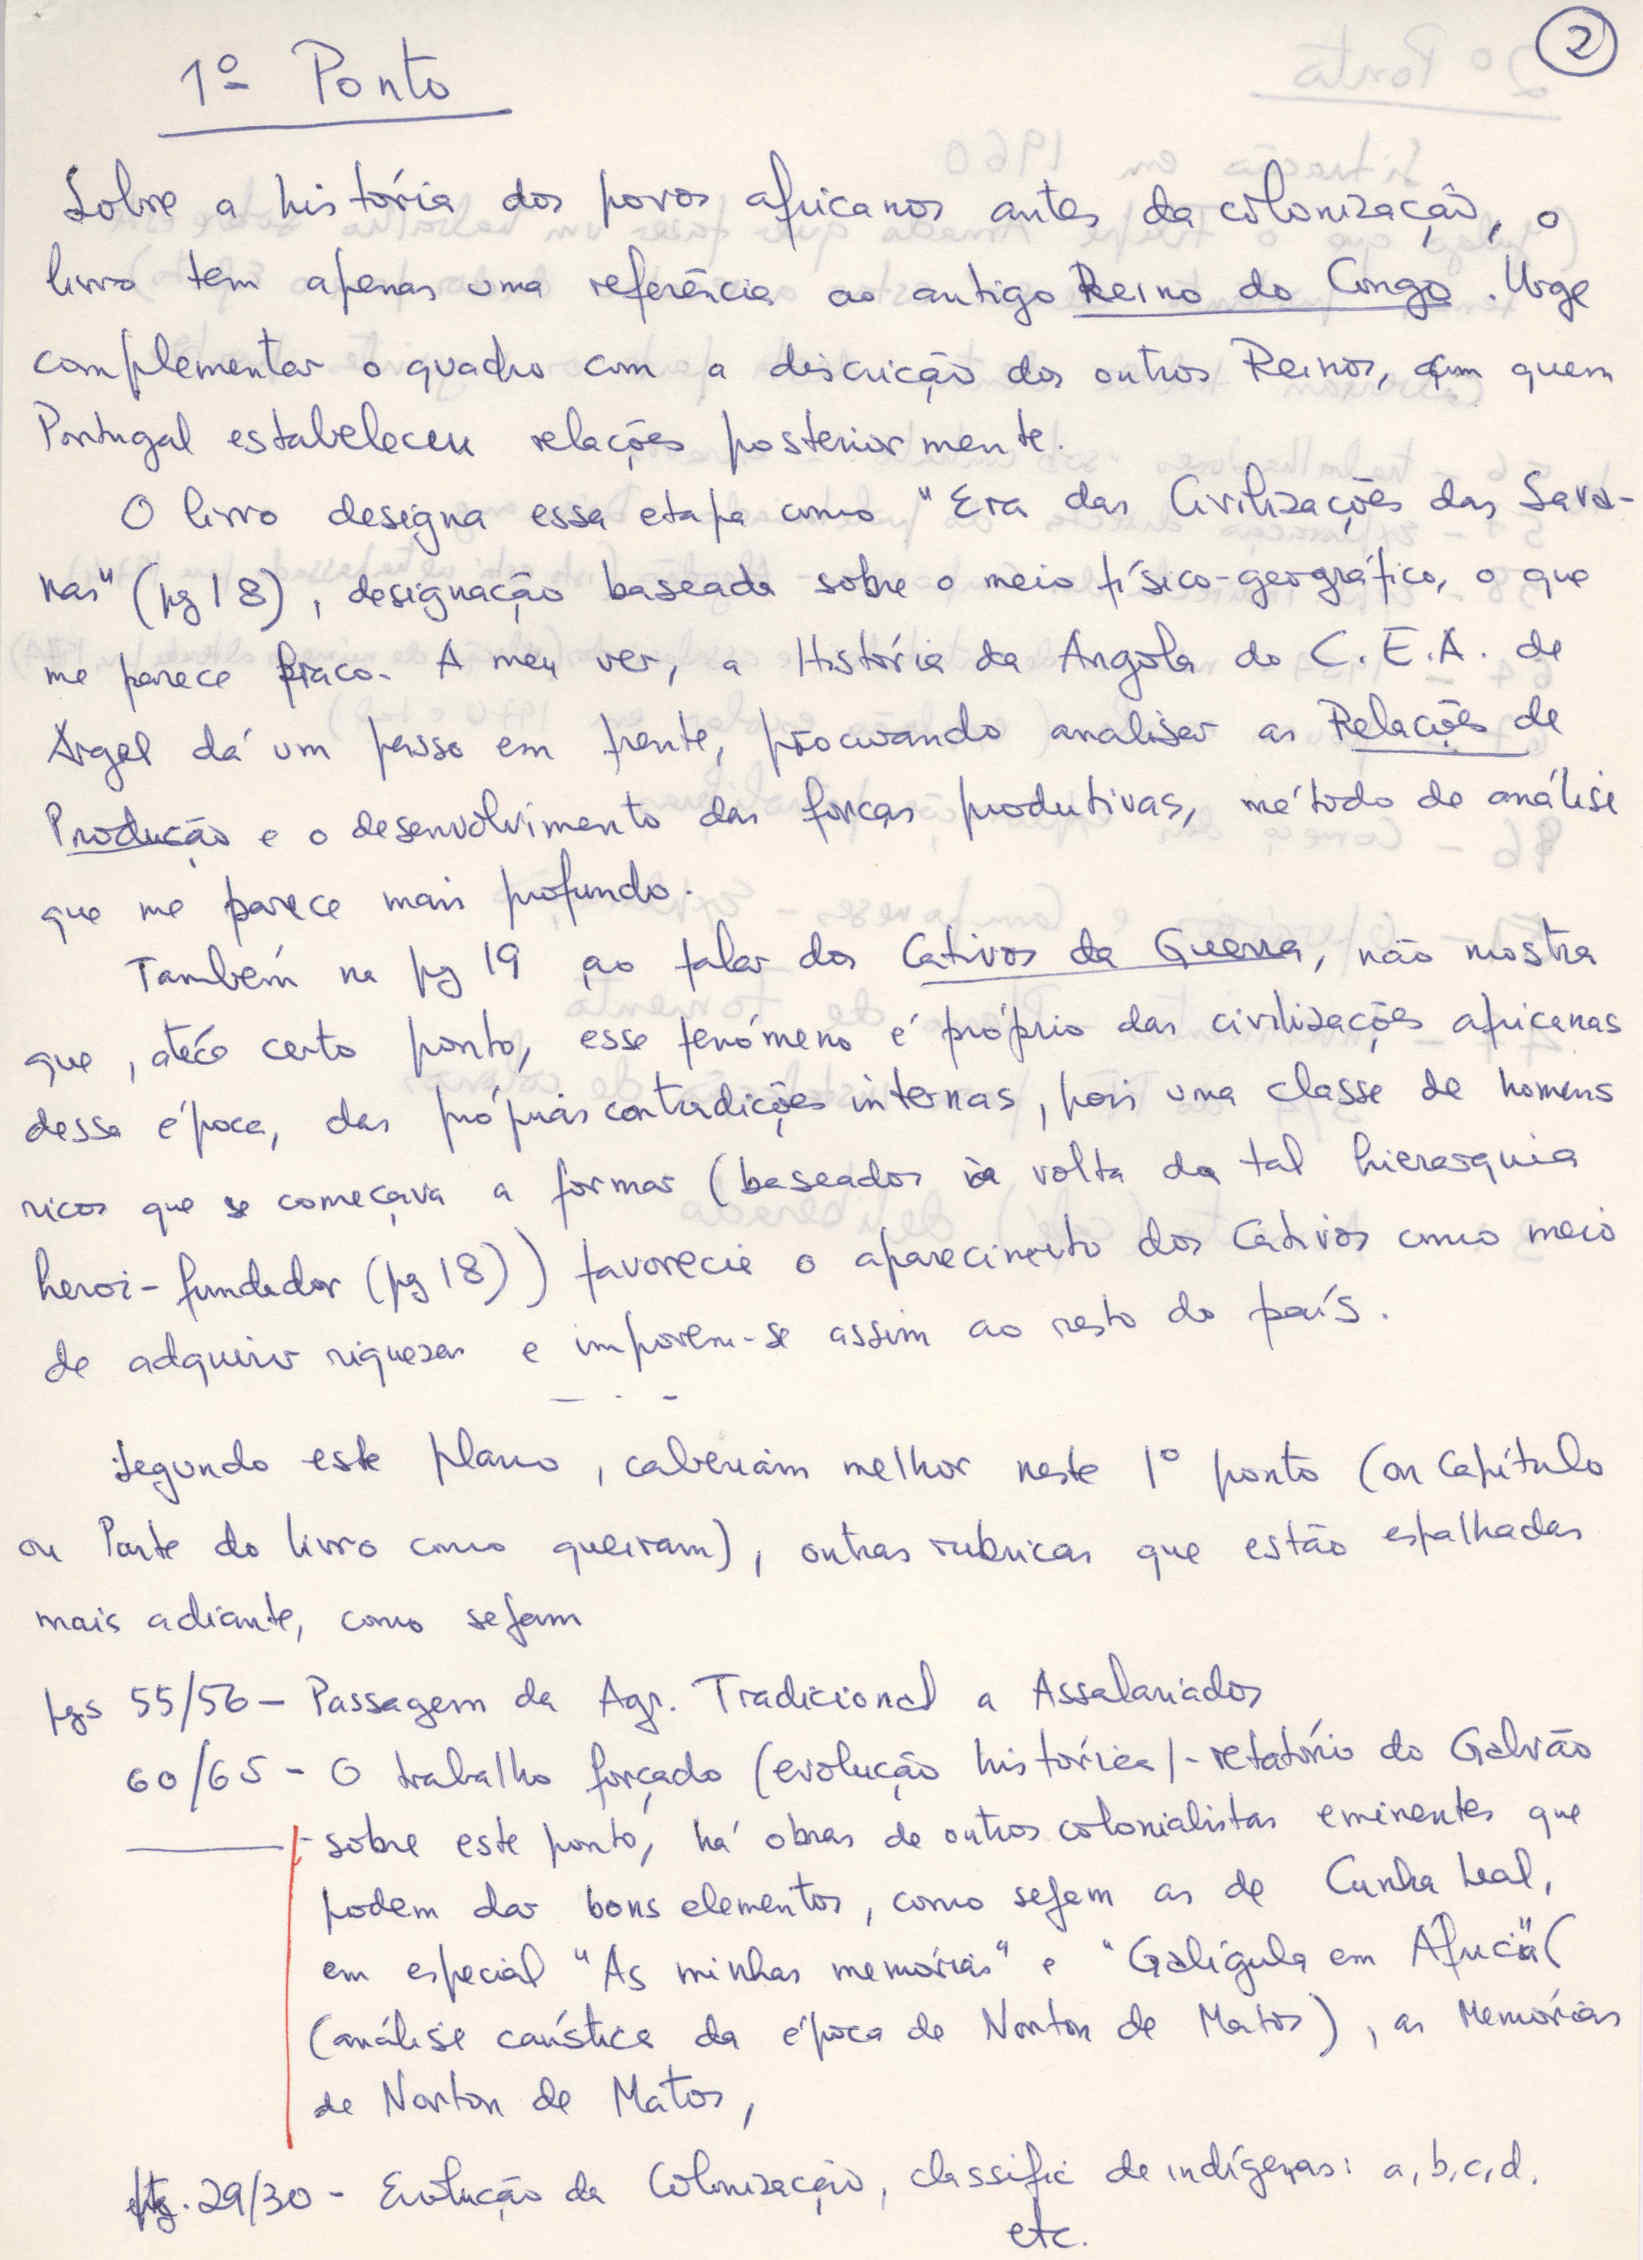 2
1º Ponto
Sobre a história dos povos africanos antes da colonização, o
livro tem apenas uma referência ao antigo Reino do Congo. Urge
complementar o quadro com a discrição dos outros Reinos, com quem
Portugal estabeleceu relações posteriormente.
O livro designa essa etapa como "Era das Civilizações das Sava-
nas" (pg 18), designação baseada sobre o meio físico-geográfico, o que
me parece fraco. A meu ver, a História da Angola do C.E.A. de
Argel dá um passo em frente, procurando analisar as Relações de
Produção e o desenvolvimento das forças produtivas, método de análise
que me parece mais profundo.
Também na pg 19 ao falar dos Cativos da Guerra, não mostra
que, até certo ponto, esse fenómeno é próprio das civilizações africanas
dessa época, das próprias contradições internas, pois uma classe de homens
ricos que se começava a formar (baseados à volta da tal hierarquia
heroi-fundador (pg 18)) favorecia o aparecimento dos Cativos como meio
de adquirir riquezas e imporem-se assim ao resto do país.
— . -
Segundo este plano, caberiam melhor neste 1º ponto (ou Capítulo
ou Parte do livro como queiram), outras rubricas que estão espalhadas
mais adiante, como sejam
pgs 55/56 - Passagem da Agr. Tradicional a Assalariados
60/65 - O trabalho forçado (evolução histórica/-relatório do Galvão
- sobre este ponto, há obras de outros colonialistas eminentes que
podem dar bons elementos, como sejam as de Cunha Leal,
em especial "As minhas memórias" e "Calígula em África" (
(análise caústica da época de Norton de Matos), as Memórias
de Norton de Matos,
pg. 29/30 - Evolução da Colonização, classific de indígenas: a, b, c, d.
etc.